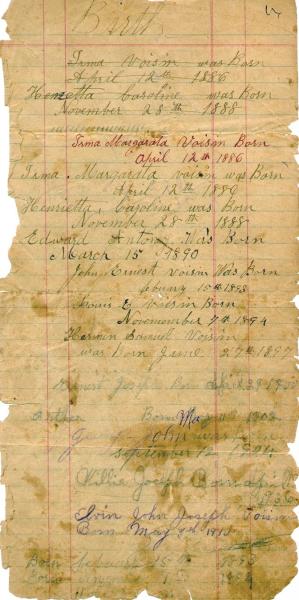 Irma Voisin was Born
April 12th 1886
Henrietta Caroline was Born
November 28th 1888
Irma Margarata Voisin Born
April 12th 1886
Irma Margarata Voisin was Born
April 12th 1886
Henrietta, Caroline was Born
November 28th 1888
Edward Anton Was Born
March 15 1890
John Ernest Voisin Was Born
febuary 15th
Louis E Voisin Born
Novemember 7th 1894
Herman Voisin
was Born June 27th 1897
Ernest Joseph Born April
Born May 11th
John was
September 12 1904
Willie Joseph Born April
Irvin John Joseph Voisin
Born May 9th
Born febuary 15th